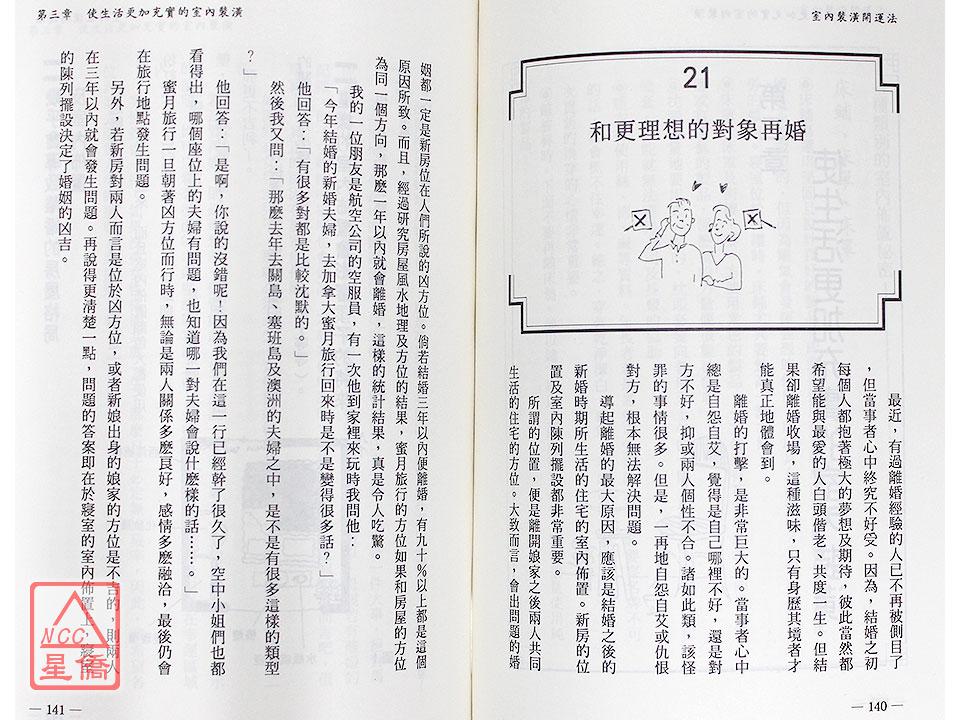 室內裝潢開運法
21
和更理想的對象再婚
最近，有過離婚經驗的人已不再被側目了
，但當事者心中終究不好受。因為，結婚之初
每個人都抱著極大的夢想及期待，彼此當然都
希望能與最愛的人白頭偕老、共度一生。但結
果卻離婚收場，這種滋味，只有身歷其境者才
能真正地體會到。
離婚的打擊，是非常巨大的。當事者心中
總是自怨自艾，覺得是自己哪裡不好，還是對
方不好，抑或兩人個性不合。諸如此類，該怪
罪的事情很多。但是，一再地自怨自艾或仇恨
對方，根本無法解決問題。
導起離婚的最大原因，應該是結婚之後的
新婚時期所生活的住宅的室內佈置。新房的位
置及室內陳列擺設都非常重要。
所謂的位置，便是離開娘家之後兩人共同
生活的住宅的方位。大致而言，會出問題的婚
— 140 —
第三章 使生活更加充實的室內裝潢
姻都一定是新房位在人們所說的凶方位。倘若結婚三年以內便離婚，有九十%以上都是這個
原因所致。而且，經過研究房屋風水地理及方位的結果，蜜月旅行的方位如果和房屋的方位
為同一個方向，那麼一年以內就會離婚，這樣的統計結果，真是令人吃驚。
我的一位朋友是航空公司的空服員，有一次他到家裡來玩時我問他：
「今年結婚的新婚夫婦，去加拿大蜜月旅行回來時是不是變得很多話？」
他回答：「有很多對都是比較沈默的。」）。
然後我又問：「那麼去年去關島、塞班島及澳洲的夫婦之中，是不是有很多這樣的類型
？」
他回答：「是啊，你說的沒錯呢！因為我們在這一行已經幹了很久了，空中小姐們也都
看得出，哪個座位上的夫婦有問題，也知道哪一對夫婦會說什麼樣的話……。」
蜜月旅行一旦朝著凶方位而行時，無論是兩人關係多麼良好，感情多麼融洽，最後仍會
在旅行地點發生問題。
另外，若新房對兩人而言是位於凶方位，或者新娘出身的娘家的方位是不吉的，則兩人
在三年以內就會發生問題。再說得更清楚一點，問題的答案即在於寢室的室內佈置上，寢室
的陳列擺設決定了婚姻的凶吉。
— 141 —
NCC
星僑